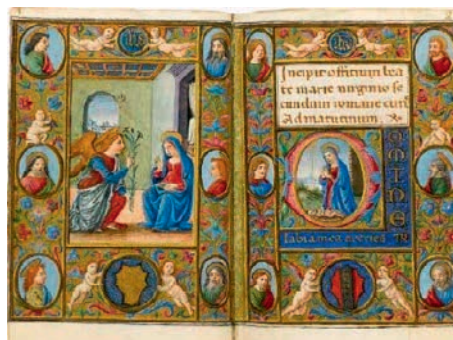 Incipit offitium bea
te marie virginis se
cundum romane curi
Ad matutinum.
DOMINE
labia mea aperies